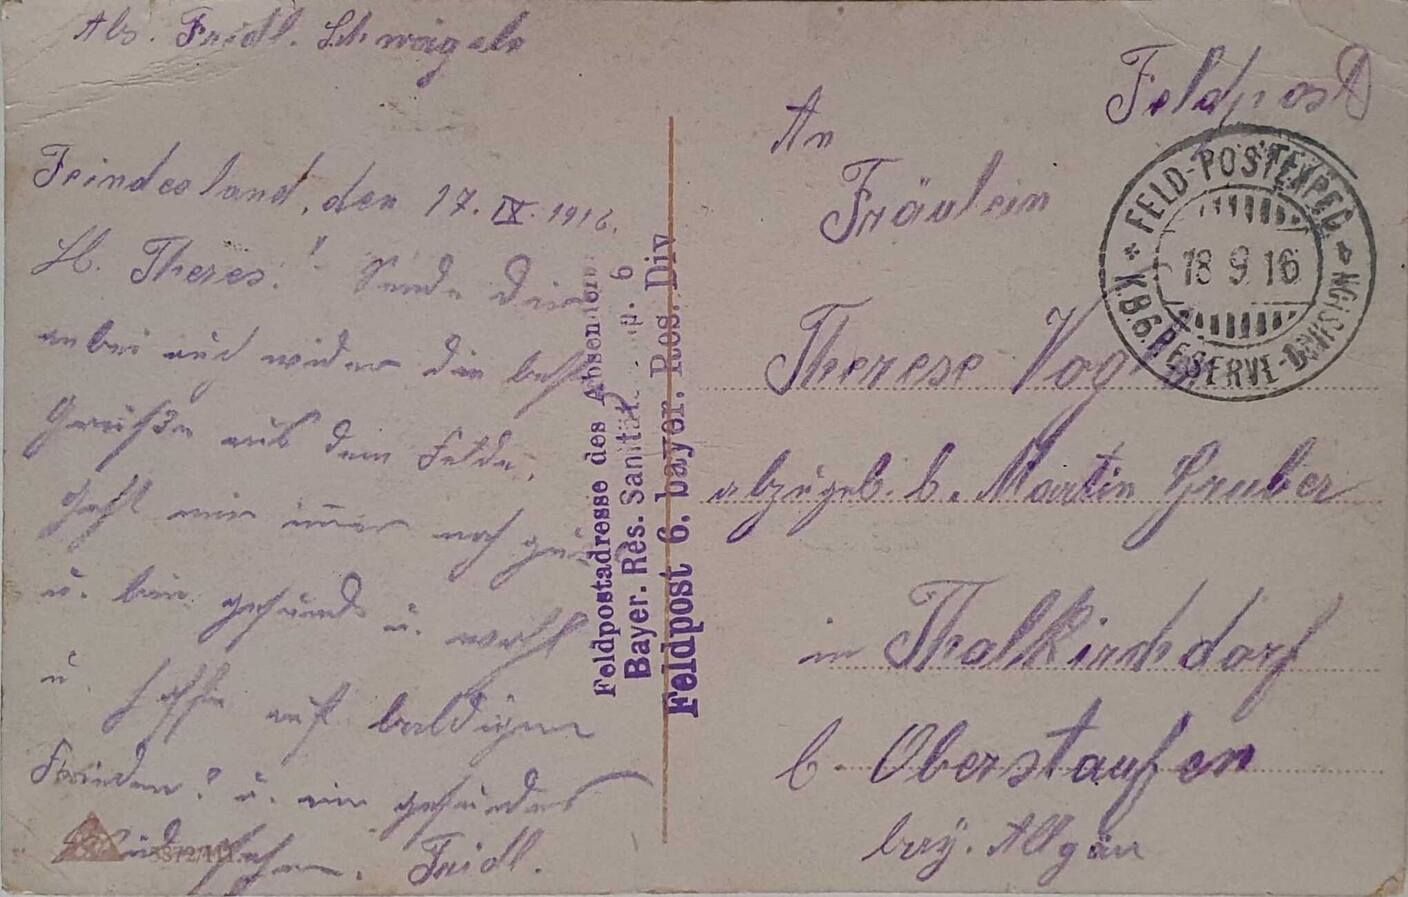 Abs. Fridl. Schwägele
Feindesland, den 17. IX. 1916.
Lb. Theres! Sende Dir
anbei auch wider die besten
Grüße aus dem Felde,
Geht mir immer noch gut
u. bin gesund u. wohl
u. hoffe auf baldigen
Frieden? u. ein gesundes
Wiedersehen. Fridl.
Feldpostadresse des Absenders:
Bayer. Res. Sanitäts 6
Feldpost 6. bayer. Res. Div
Feldpost
FELD-POSTEXPED
18 9 16
K.B.6.RESERVE-DIVISION
An
Fräulein
Therese
abzugeb. b. Martin Gruber
in Thalkirchdorf
b. Oberstaufen
bay. Allgäu